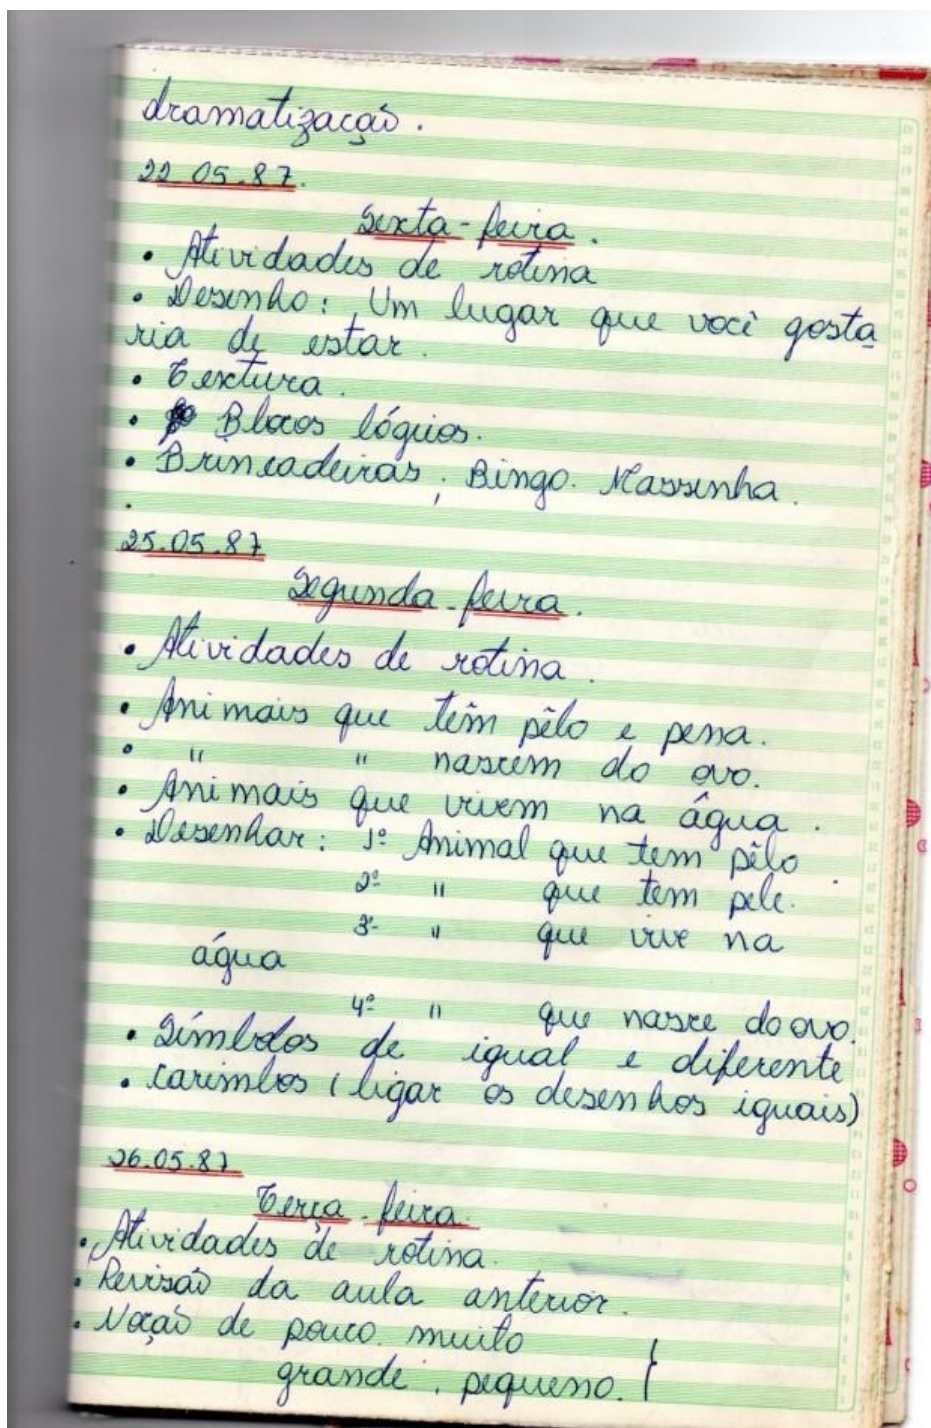 dramatização.
22.05.87.
Sexta-feira.
• Atividades de rotina
• Desenho: Um lugar que você gosta
ria de estar.
• Textura.
• Blocos lógicos.
• Brincadeiras; Bingo. Massinha.
•
25.05.87
Segunda-feira.
• Atividades de rotina.
• Animais que têm pêlo e pena.
• " " nascem do ovo.
• Animais que vivem na água.
• Desenhar: 1º Animal que tem pêlo
2º " que tem pele.
3º " que vive na
água
4º " que nasce do ovo.
• Símbolos de igual e diferente
• Carimbos (ligar os desenhos iguais)
26.05.87
Terça-feira.
• Atividades de rotina.
• Revisão da aula anterior.
• Noção de pouco. muito
grande, pequeno. }